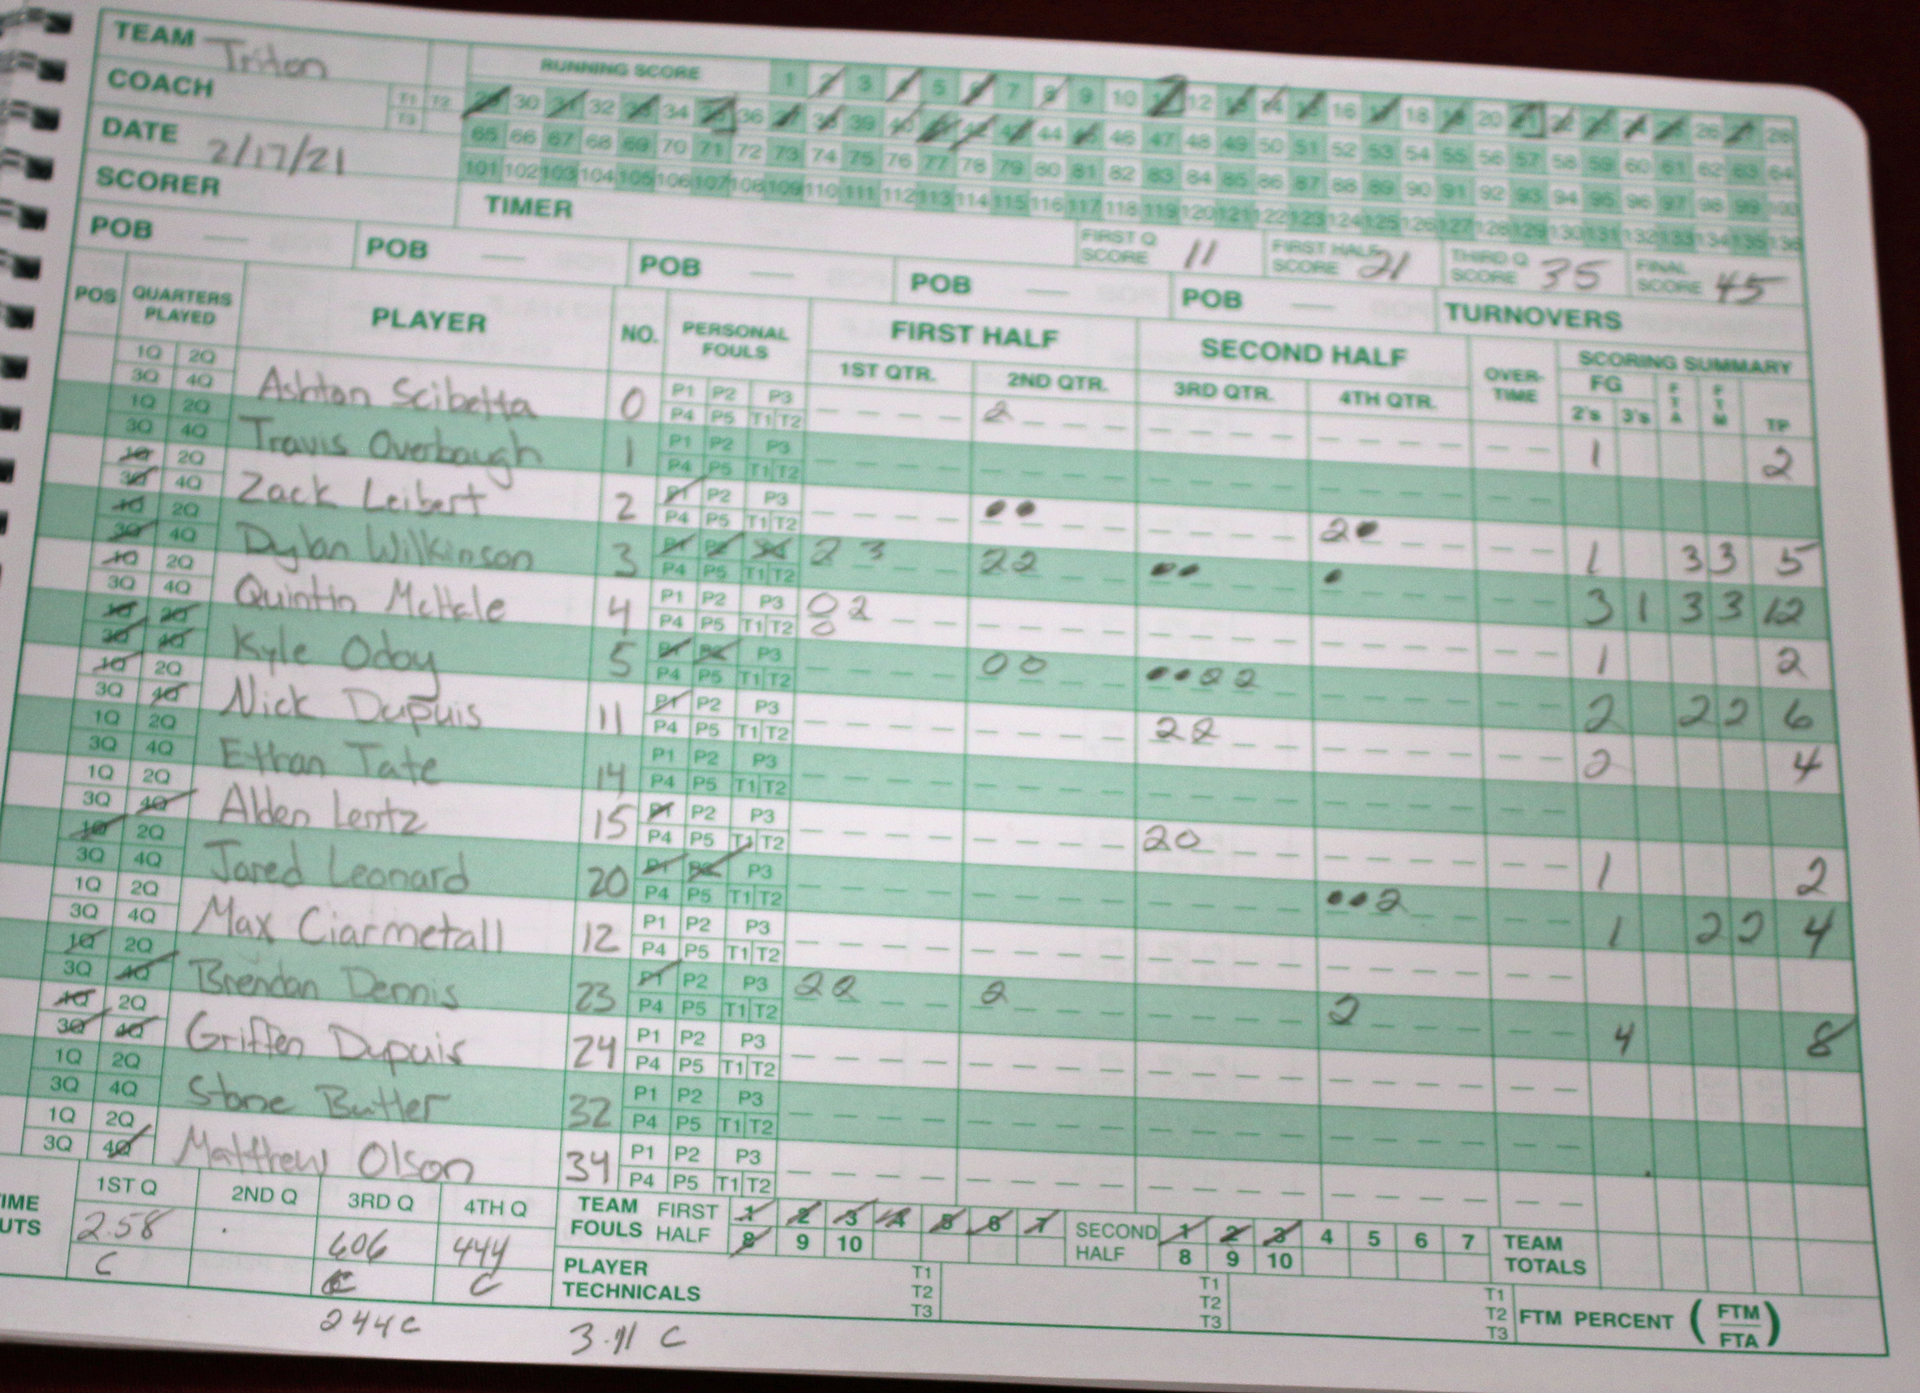 TEAM Triton
RUNNING SCORE 1 2 3 4 5 6 7 8 9 10 11 12 13 14 15 16 17 18 19 20 21 22 23 24 25 26 27 28
COACH T1 T2 T3
29 30 31 32 33 34 35 36 37 38 39 40 41 42 43 44 45 46 47 48 49 50 51 52 53 54 55 56 57 58 59 60 61 62 63 64
DATE 2/17/21
65 66 67 68 69 70 71 72 73 74 75 76 77 78 79 80 81 82 83 84 85 86 87 88 89 90 91 92 93 94 95 96 97 98 99 100
101 102 103 104 105 106 107 108 109 110 111 112 113 114 115 116 117 118 119 120 121 122 123 124 125 126 127 128 129 130 131 132 133 134 135 136
SCORER TIMER
FIRST Q SCORE 11 FIRST HALF SCORE 21 THIRD Q SCORE 35 FINAL SCORE 45
POB — POB — POB — POB — POB — TURNOVERS
POS QUARTERS PLAYED PLAYER NO. PERSONAL FOULS FIRST HALF SECOND HALF OVER-TIME SCORING SUMMARY
1ST QTR. 2ND QTR. 3RD QTR. 4TH QTR. FG 2's 3's FTA FTM TP
1Q 2Q 3Q 4Q Ashton Scibetta 0 P1 P2 P3 P4 P5 T1 T2 2 1 2
1Q 2Q 3Q 4Q Travis Overbaugh 1 P1 P2 P3 P4 P5 T1 T2
1Q 2Q 3Q 4Q Zack Leibert 2 P1 P2 P3 P4 P5 T1 T2 •• 2• 1 3 3 5
1Q 2Q 3Q 4Q Dylan Wilkinson 3 P1 P2 P3 P4 P5 T1 T2 2 3 2 2 •• • 3 1 3 3 12
1Q 2Q 3Q 4Q Quintin McHale 4 P1 P2 P3 P4 P5 T1 T2 0 2 0 1 2
1Q 2Q 3Q 4Q Kyle Odoy 5 P1 P2 P3 P4 P5 T1 T2 0 0 •• 2 2 2 2 2 6
1Q 2Q 3Q 4Q Nick Dupuis 11 P1 P2 P3 P4 P5 T1 T2 2 2 2 4
1Q 2Q 3Q 4Q Ethan Tate 14 P1 P2 P3 P4 P5 T1 T2
1Q 2Q 3Q 4Q Alden Lentz 15 P1 P2 P3 P4 P5 T1 T2 2 0 1 2
1Q 2Q 3Q 4Q Jared Leonard 20 P1 P2 P3 P4 P5 T1 T2 •• 2 1 2 2 4
1Q 2Q 3Q 4Q Max Ciarmetall 12 P1 P2 P3 P4 P5 T1 T2
1Q 2Q 3Q 4Q Brendan Dennis 23 P1 P2 P3 P4 P5 T1 T2 2 2 2 2 4 8
1Q 2Q 3Q 4Q Griffen Dupuis 24 P1 P2 P3 P4 P5 T1 T2
1Q 2Q 3Q 4Q Stone Butler 32 P1 P2 P3 P4 P5 T1 T2
1Q 2Q 3Q 4Q Matthew Olson 34 P1 P2 P3 P4 P5 T1 T2
IME UTS 1ST Q 2ND Q 3RD Q 4TH Q
2.58 606 444
C C C
TEAM FOULS FIRST HALF 1 2 3 4 5 6 7 8 9 10 SECOND HALF 1 2 3 4 5 6 7 8 9 10 TEAM TOTALS
PLAYER TECHNICALS T1 T2 T3 T1 T2 T3 T1 T2 T3 FTM PERCENT (FTM FTA)
244 C 3.11 C